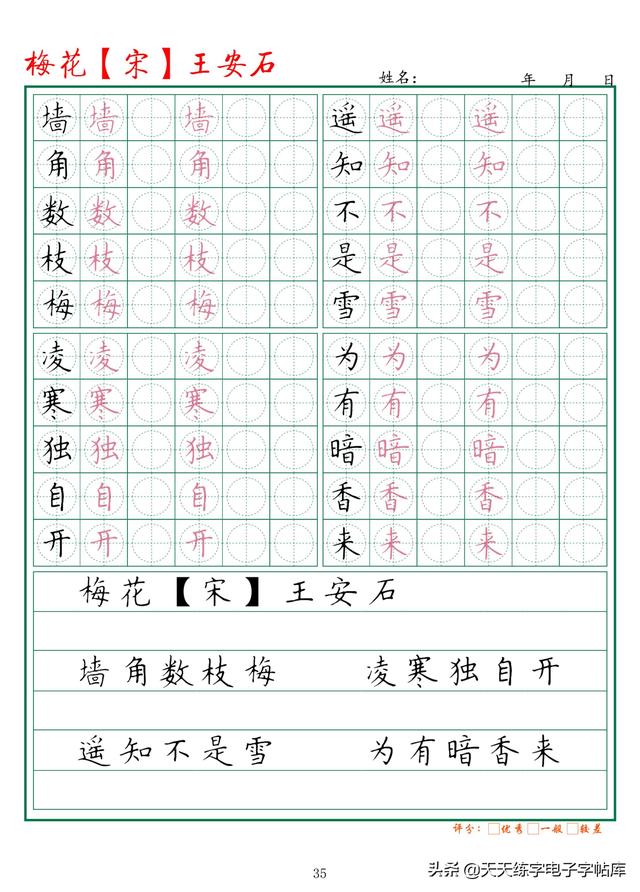 梅花【宋】王安石
姓名： 年 月 日
墙 墙 墙 遥 遥 遥
角 角 角 知 知 知
数 数 数 不 不 不
枝 枝 枝 是 是 是
梅 梅 梅 雪 雪 雪
凌 凌 凌 为 为 为
寒 寒 寒 有 有 有
独 独 独 暗 暗 暗
自 自 自 香 香 香
开 开 开 来 来 来
梅花【宋】王安石
墙角数枝梅 凌寒独自开
遥知不是雪 为有暗香来
评分：□优秀□一般□较差
35
头条@天天练字电子字帖库